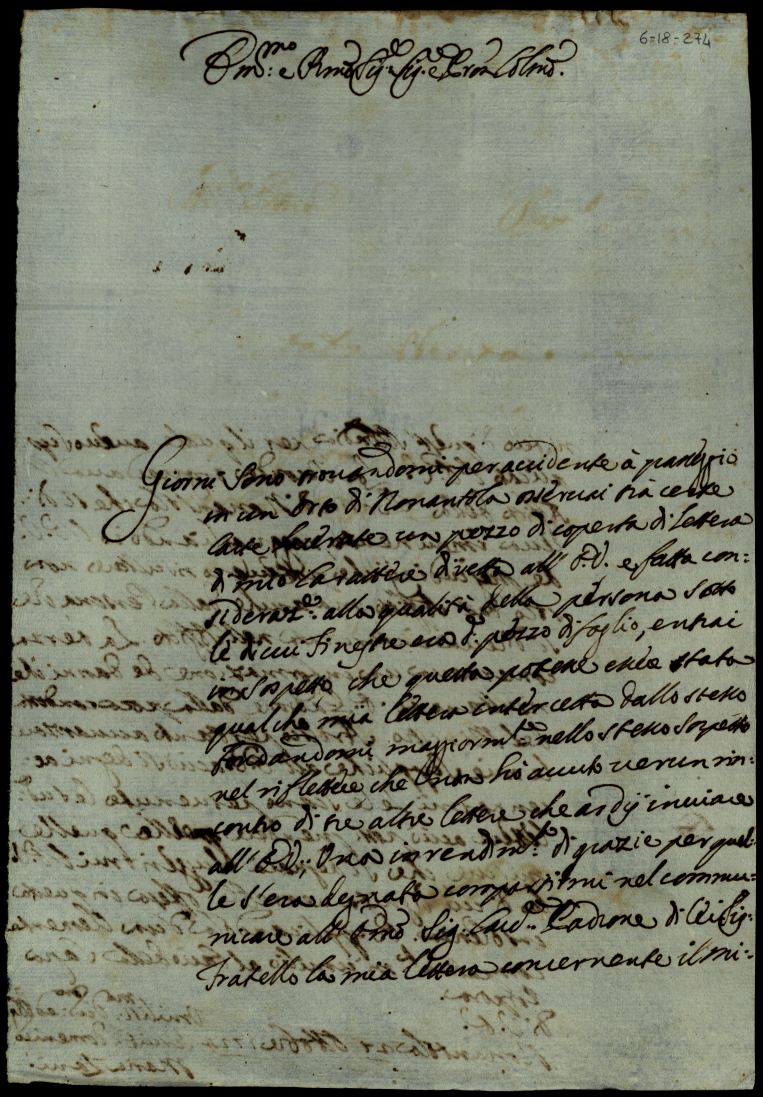 6-18-274
Em.mo e Rmo Sig.r Sig.r e Pron Colmo.
Giorni sono trouandomi per accidente à passeggio
in un' Orto di Nonantola osseruai trà certe
Carte lacerate un pezzo di coperta di Lettera
di mio Carattere diretta all' E.V. e fatta con-
sideraz.e alla qualità della persona sotto
le di cui Finestre era d.o pezzo di foglio, entrai
in sospetto che questa potesse essere stata
qualche mia lettera intercetta dallo stesso
fondandomi maggiorm.te nello stesso sospetto
nel riflettere che non hò auuto uerun rin-
contro di tre altre lettere che ardij inuiare
all' E.V., Una in rendim.to di grazie per quel-
le s'era degnata compartirmi nel commu-
nicare all' Emo Sig. Card. Padrone di Lei Sig.
Fratello la mia lettera concernente il mi-